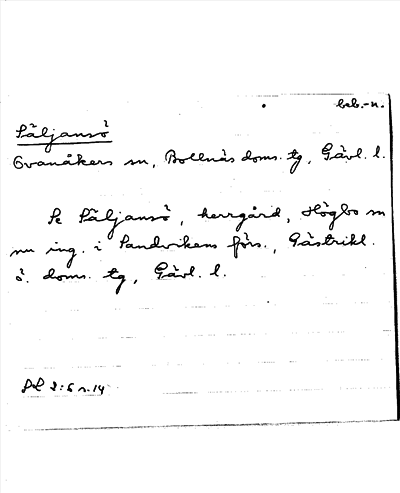 beb.-n.
Säljansö
Ovanåkers sn, Bollnäs doms. tg, Gävl. l.
Se Säljansö, herrgård, Högbo sn
nu ing. i Sandvikens förs., Gästrikl.
ö. doms. tg, Gävl. l.
2:6 s. 14